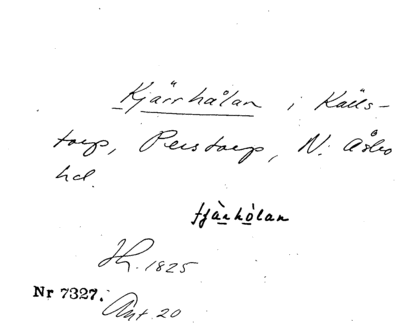 Kjärrhålan i Källs-
torp, Perstorp, N. Åsbo
hd.
tjàrhòlan
Jh. 1825
Nr 7327.
Ant. 20